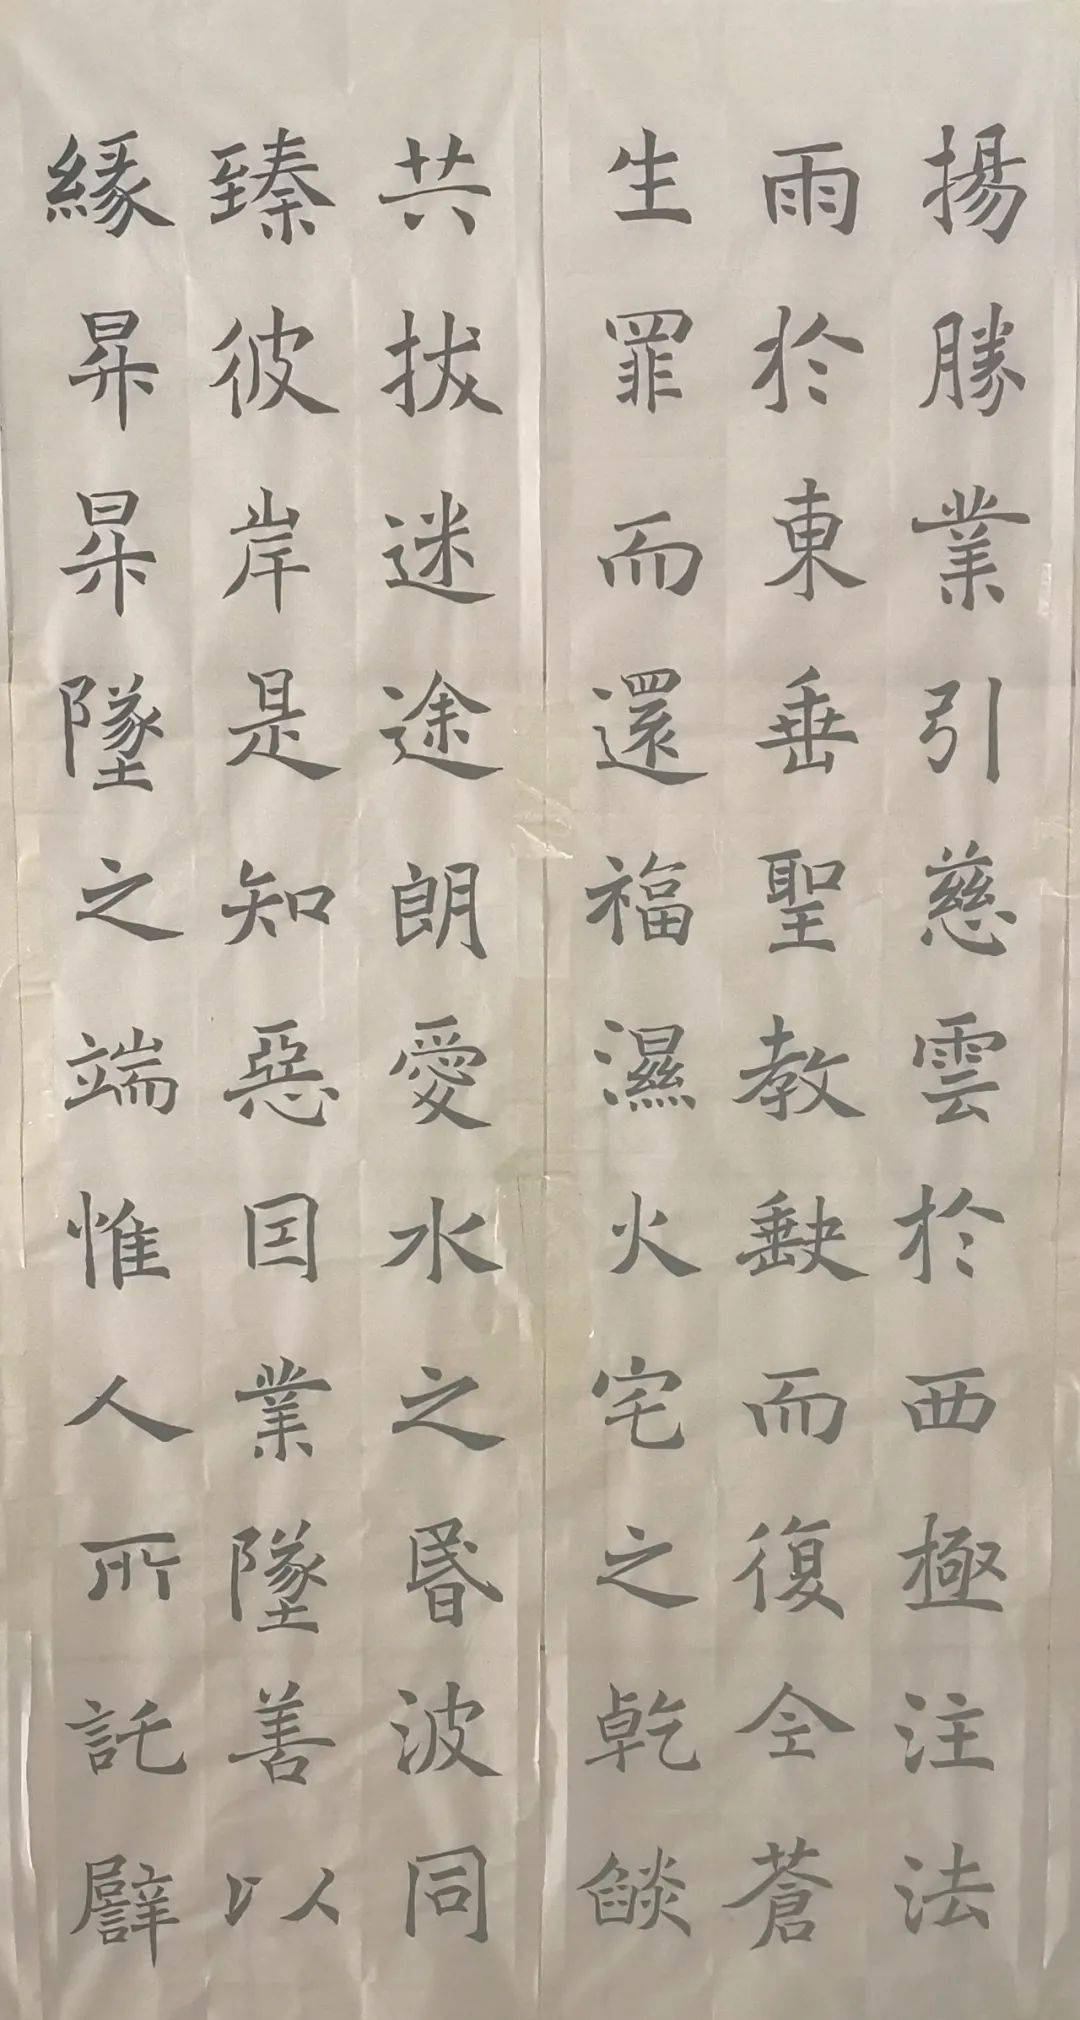 揚勝業引慈雲於西極注法
雨於東垂聖教缺而復仝蒼
生罪而還福濕火宅之乾燄
共拔迷途朗愛水之昬波同
臻彼岸是知惡因業墜善以
緣昇昇墜之端惟人所託譬